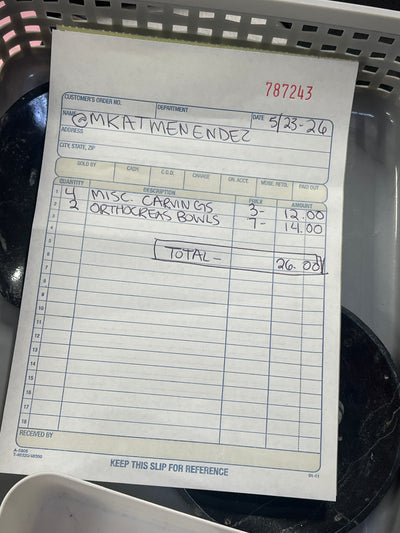 787243
CUSTOMER'S ORDER NO. DEPARTMENT DATE 5/23-26
NAME @MKATMENENDEZ
ADDRESS
CITY, STATE, ZIP
SOLD BY CASH C.O.D. CHARGE ON. ACCT. MDSE. RETD. PAID OUT
QUANTITY DESCRIPTION PRICE AMOUNT
1 4 MISC. CARVINGS 3- 12.00
2 2 ORTHOCREAS BOWLS 7- 14.00
3
4
5
6 TOTAL- 26.00
7
8
9
10
11
12
13
14
15
16
17
18
RECEIVED BY
A-5805
T-46320/46350
KEEP THIS SLIP FOR REFERENCE
01-11